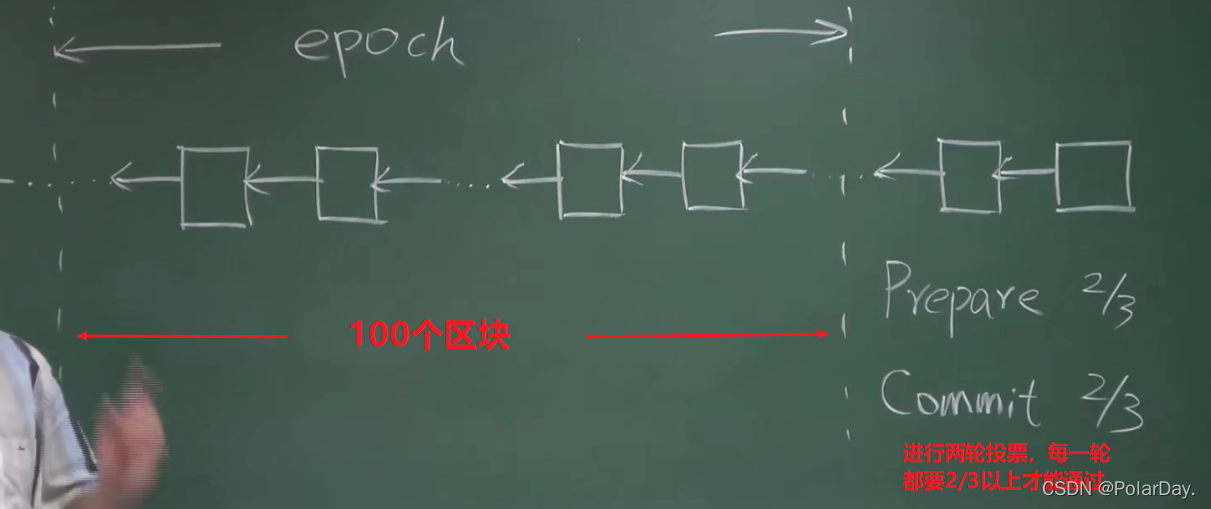 epoch
100个区块
Prepare 2/3
Commit 2/3
进行两轮投票，每一轮
都要2/3以上才能通过
CSDN @PolarDay.